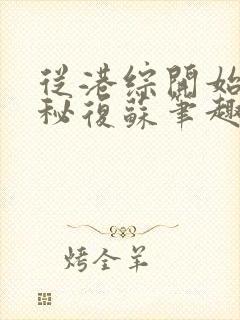 從港綜開始
秘復蘇筆趣
烤全羊